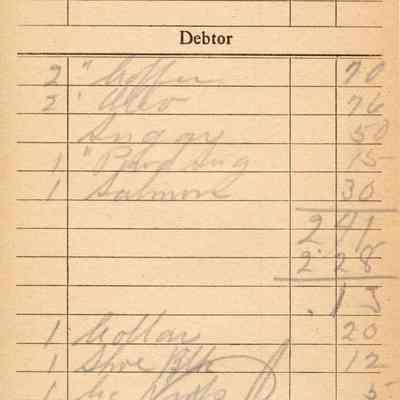 Debtor
2 " Coffee 70
2 " Oleo 76
Sugar 50
1 " Powd Sug 15
1 Salmon 30
2 41
2.28
.13
1 Collar 20
1 Shoe Blk 12
1 5